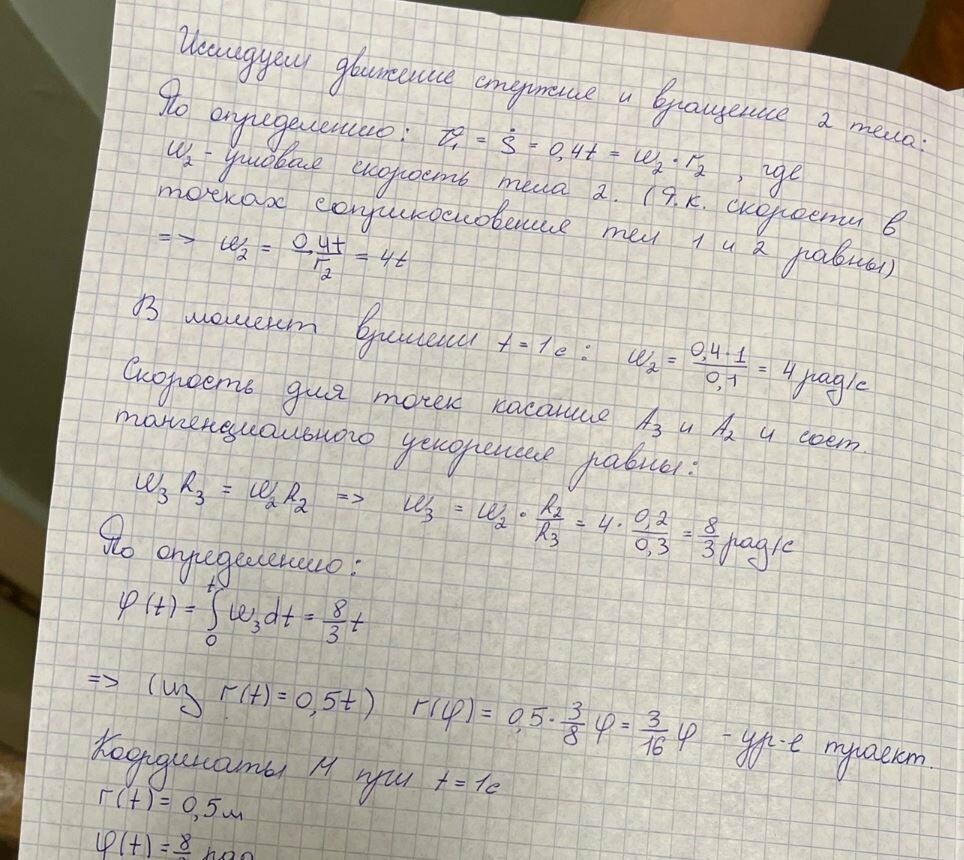 Исследуем движение стержня и вращение 2 тела:
По определению: V₁ = Ṡ = 0,4t = ω₂·r₂, где
ω₂ - угловая скорость тела 2. (Т.к. скорости в
точках соприкосновения тел 1 и 2 равны)
=> ω₂ = 0,4t/r₂ = 4t
В момент времени t = 1с: ω₂ = 0,4·1/0,1 = 4 рад/с
Скорость для точек касания A₃ и A₂ и сост.
тангенциального ускорения равны:
ω₃R₃ = ω₂R₂ => ω₃ = ω₂·R₂/R₃ = 4·0,2/0,3 = 8/3 рад/с
По определению:
φ(t) = ∫₀ᵗ ω₃dt = 8/3 t
=> (из r(t) = 0,5t) r(φ) = 0,5·3/8 φ = 3/16 φ - ур-е траект.
Координаты М при t = 1с
r(t) = 0,5м
φ(t) = 8/ рад